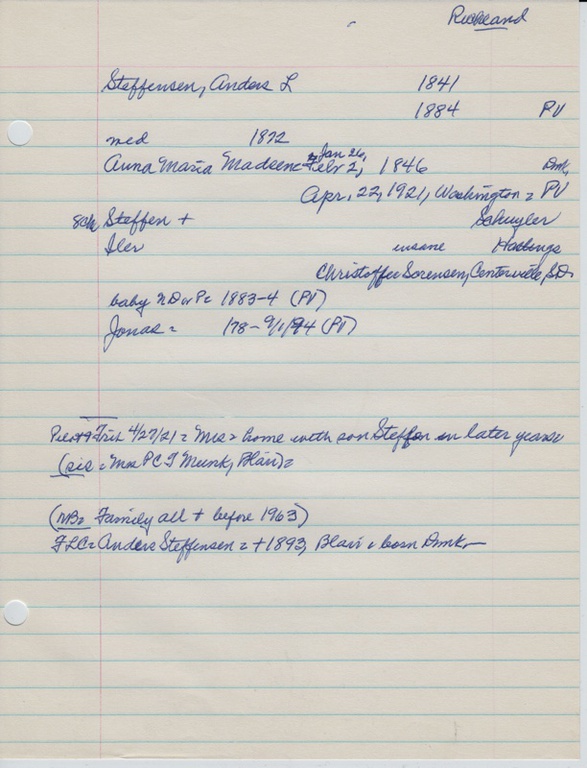 Richland
Steffensen, Anders L 1841
1884 PV
med 1872
Anna Maria Madsen Jan 26, Febr 2, 1846 Dmk,
Apr, 22, 1921, Washington = PV
8 ch Steffen + Schuyler
Iler insane Hastings
Christoffer Sorensen, Centerville, S.D.
baby 1883-4 (PV)
Jonas = 178 - 9/1/94 (PV)
Pilot + Trib 4/27/21 = Mrs = home with son Steffen in later years
(sis = Mrs P C T Munk, Blair) =
(NB = Family all + before 1963)
FLC = Anders Steffensen = +1893, Blair = born Dmk -